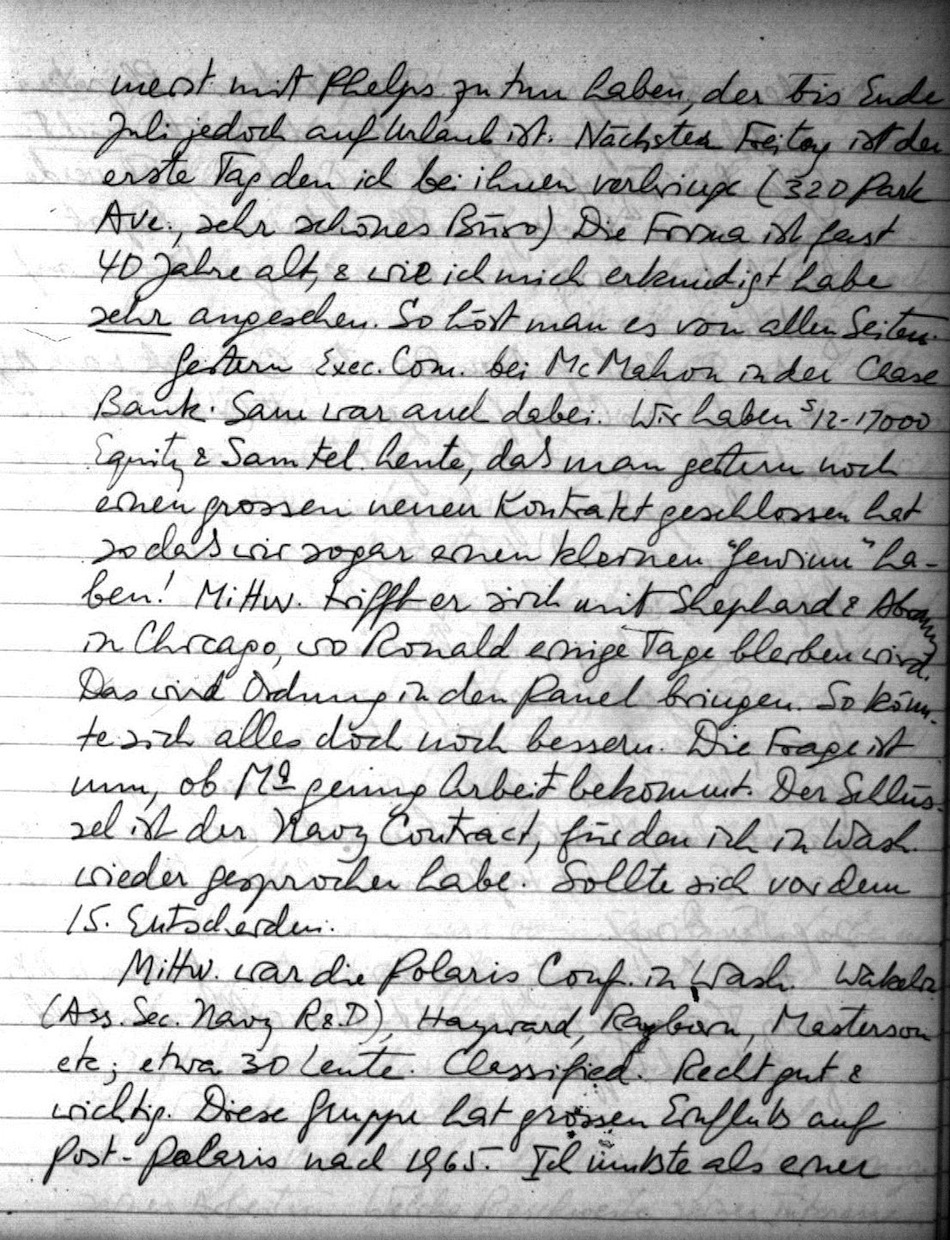 meist mit Phelps zu tun haben, der bis Ende
Juli jedoch auf Urlaub ist. Nächsten Freitag ist der
erste Tag den ich bei ihnen verbringe (320 Park
Ave., sehr schönes Büro) Die Firma ist fast
40 Jahre alt, & wie ich mich erkundigt habe
sehr angesehen. So hört man es von allen Seiten.
Gestern Exec. Com. bei McMahon in der Chase
Bank. Sam war auch dabei. Wir haben $12-17000
Equity & Sam tel. heute, daß man gestern noch
einen grossen neuen Kontrakt geschlossen hat
sodaß wir sogar einen kleinen "Gewinn" ha-
ben! Mittw. trifft er sich mit Shephard &
in Chicago, wo Ronald einige Tage bleiben wird.
Das wird Ordnung in den Panel bringen. So könn-
te sich alles doch noch bessern. Die Frage ist
nun, ob genug Arbeit bekommt. Der Schlüs-
sel ist der Navy Contract, für den ich in Wash.
wieder gesprochen habe. Sollte sich vor dem
15. Entscheiden.
Mittw. war die Polaris Conf. in Wash. Wakelin
(Ass. Sec. Navy R&D), Hayward, Rayborn, Masterson
etc; etwa 30 Leute. Classified. Recht gut &
wichtig. Diese Gruppe hat grossen Einfluß auf
Post-Polaris nach 1965. Ich mußte als einer